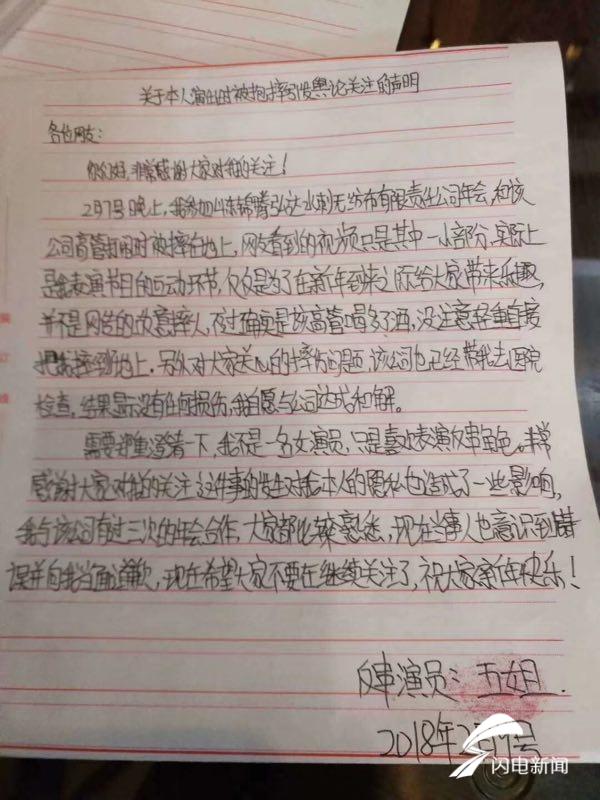 关于本人演出时被抱摔引发舆论关注的声明
各位网友:
你们好,非常感谢大家对我的关注!
2月7号晚上,我参加山东锦腾弘达水刺无纺布有限责任公司年会,和该
公司高管互动时被摔在地上,网友看到的视频只是其中一小部分,实际上
是我表演节目的互动环节,仅仅是为了在新年到来之际给大家带来乐趣,
并不是网告的故意摔人,不过确实是该高管喝多了酒,没注意轻重直接
把我摔到地上,另外对大家关心的摔伤问题,该公司也已经带我去医院
检查,结果显示没有任何损伤,我自愿与公司达成和解。
需要郑重澄清一下,我不是一名女演员,只是喜欢表演反串角色。非常
感谢大家对我的关注,这件事的发生对我本人的隐私也造成了一些影响,
我与该公司有过三次的年会合作,大家都比较熟悉,现在当事人也意识到错
误并向我当面道歉,现在希望大家不要在继续关注了,祝大家新年快乐!
反串演员:五姐.
2018年2月 号
闪电新闻